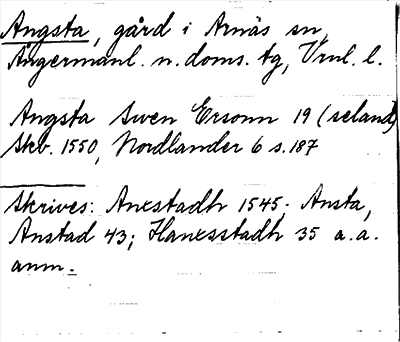 Ångsta, gård i Arnäs sn,
Ångermanl. n. doms. tg, Vrnl. l.
Angsta Swen Ersonn 19 (seland)
Skb. 1550, Nordlander 6 s. 187
Skrives: Anxstadh 1545; Ansta,
Anstad 43; Hanxsstadh 35 a.a.
anm.